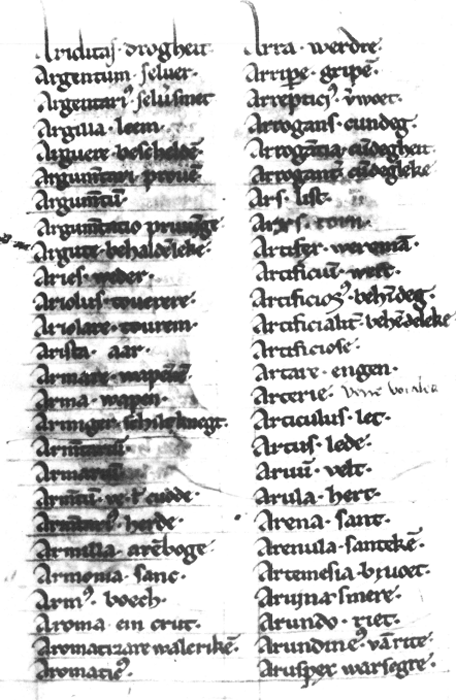 Ariditas · drogheit
Argentum · seluer ·
Argentari⁹ · selu̅smet
Argilla · leem ·
Arguere · beschelde̅
Argum̅tari · proue̅
Argum̅tu̅ ·
Argum̅tatio
Argute · behalde̅leke ·
Aries · weder ·
Ariolus · touerere ·
Ariolare · tourem ·
Arista · aar ·
Armare · wapene̅
Arma · wapen ·
Armiger · schiltknegt ·
Arm̅tariu̅ ·
Armariu̅ ·
Arm̅tu̅ · cudde ·
Arm̅tari⁹ · herde ·
Armilla · are̅boge ·
Armonia · sanc ·
Arm⁹ · boech ·
Aroma · ein crut ·
Aromatizare walerike̅ ·
Aromatic⁹ ·
Arra · werdre ·
Arripe · gripe̅ ·
Arreptici⁹ · v̅woet ·
Arrogans · cundeg ·
Arroga̅tia · cu̅degheit
Arrogant̅ · cu̅degleke
Ars · list ·
Arx · torn ·
Artifex · werema̅ ·
Artificiu̅ · werc ·
Artificios⁹ · behe̅deg ·
Artificialit̅ · behe̅deleke ·
Artificiose ·
Artare · engen ·
Arterie ·
Articulus · let ·
Artus · lede ·
Aruu̅ · velt ·
Arula · hert ·
Arena · sant ·
Arenula · santeke̅ ·
Artemesia · biuoet ·
Aruina · smere ·
Arundo · riet ·
Arundine⁹ · va̅rite ·
Aruspex · warsegre ·